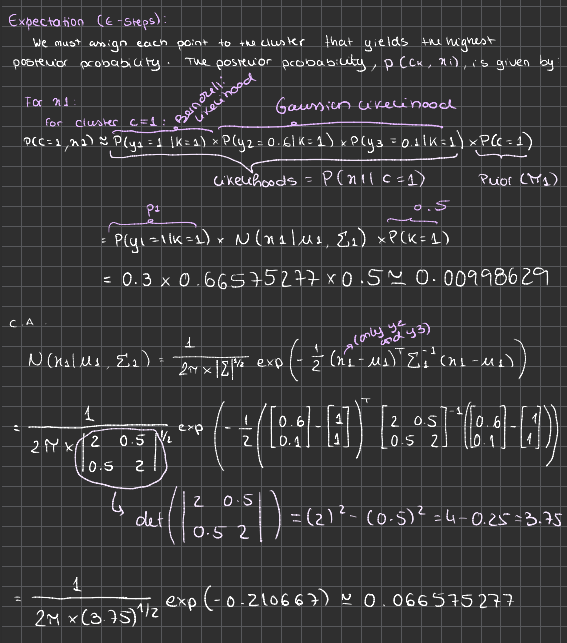 Expectation (E-Steps):
We must assign each point to the cluster that yields the highest
posterior probability. The posterior probability, p(Ck, xi), is given by:
For x1:
For cluster c=1:
Bernoulli likelihood
Gaussian likelihood
P(C=1, x1) ≈ P(y1=1|K=1) × P(y2=0.6|K=1) × P(y3=0.1|K=1) × P(C=1)
Likelihoods = P(x1|C=1)
Prior (π1)
p1
0.5
= P(y1=1|K=1) × N(x1|μ1, Σ1) × P(K=1)
= 0.3 × 0.66575277 × 0.5 ≃ 0.00998629
C.A.
(only y2 and y3)
N(x1|μ1, Σ1) = 1 / (2π × |Σ|^1/2) exp(-1/2 (x1-μ1)^T Σ1^-1 (x1-μ1))
= 1 / (2π × |2 0.5; 0.5 2|^1/2) exp(-1/2 ([0.6; 0.1] - [1; 1])^T [2 0.5; 0.5 2]^-1 ([0.6; 0.1] - [1; 1]))
↳ det(|2 0.5; 0.5 2|) = (2)^2 - (0.5)^2 = 4 - 0.25 = 3.75
= 1 / (2π × (3.75)^1/2) exp(-0.210667) ≃ 0.066575277